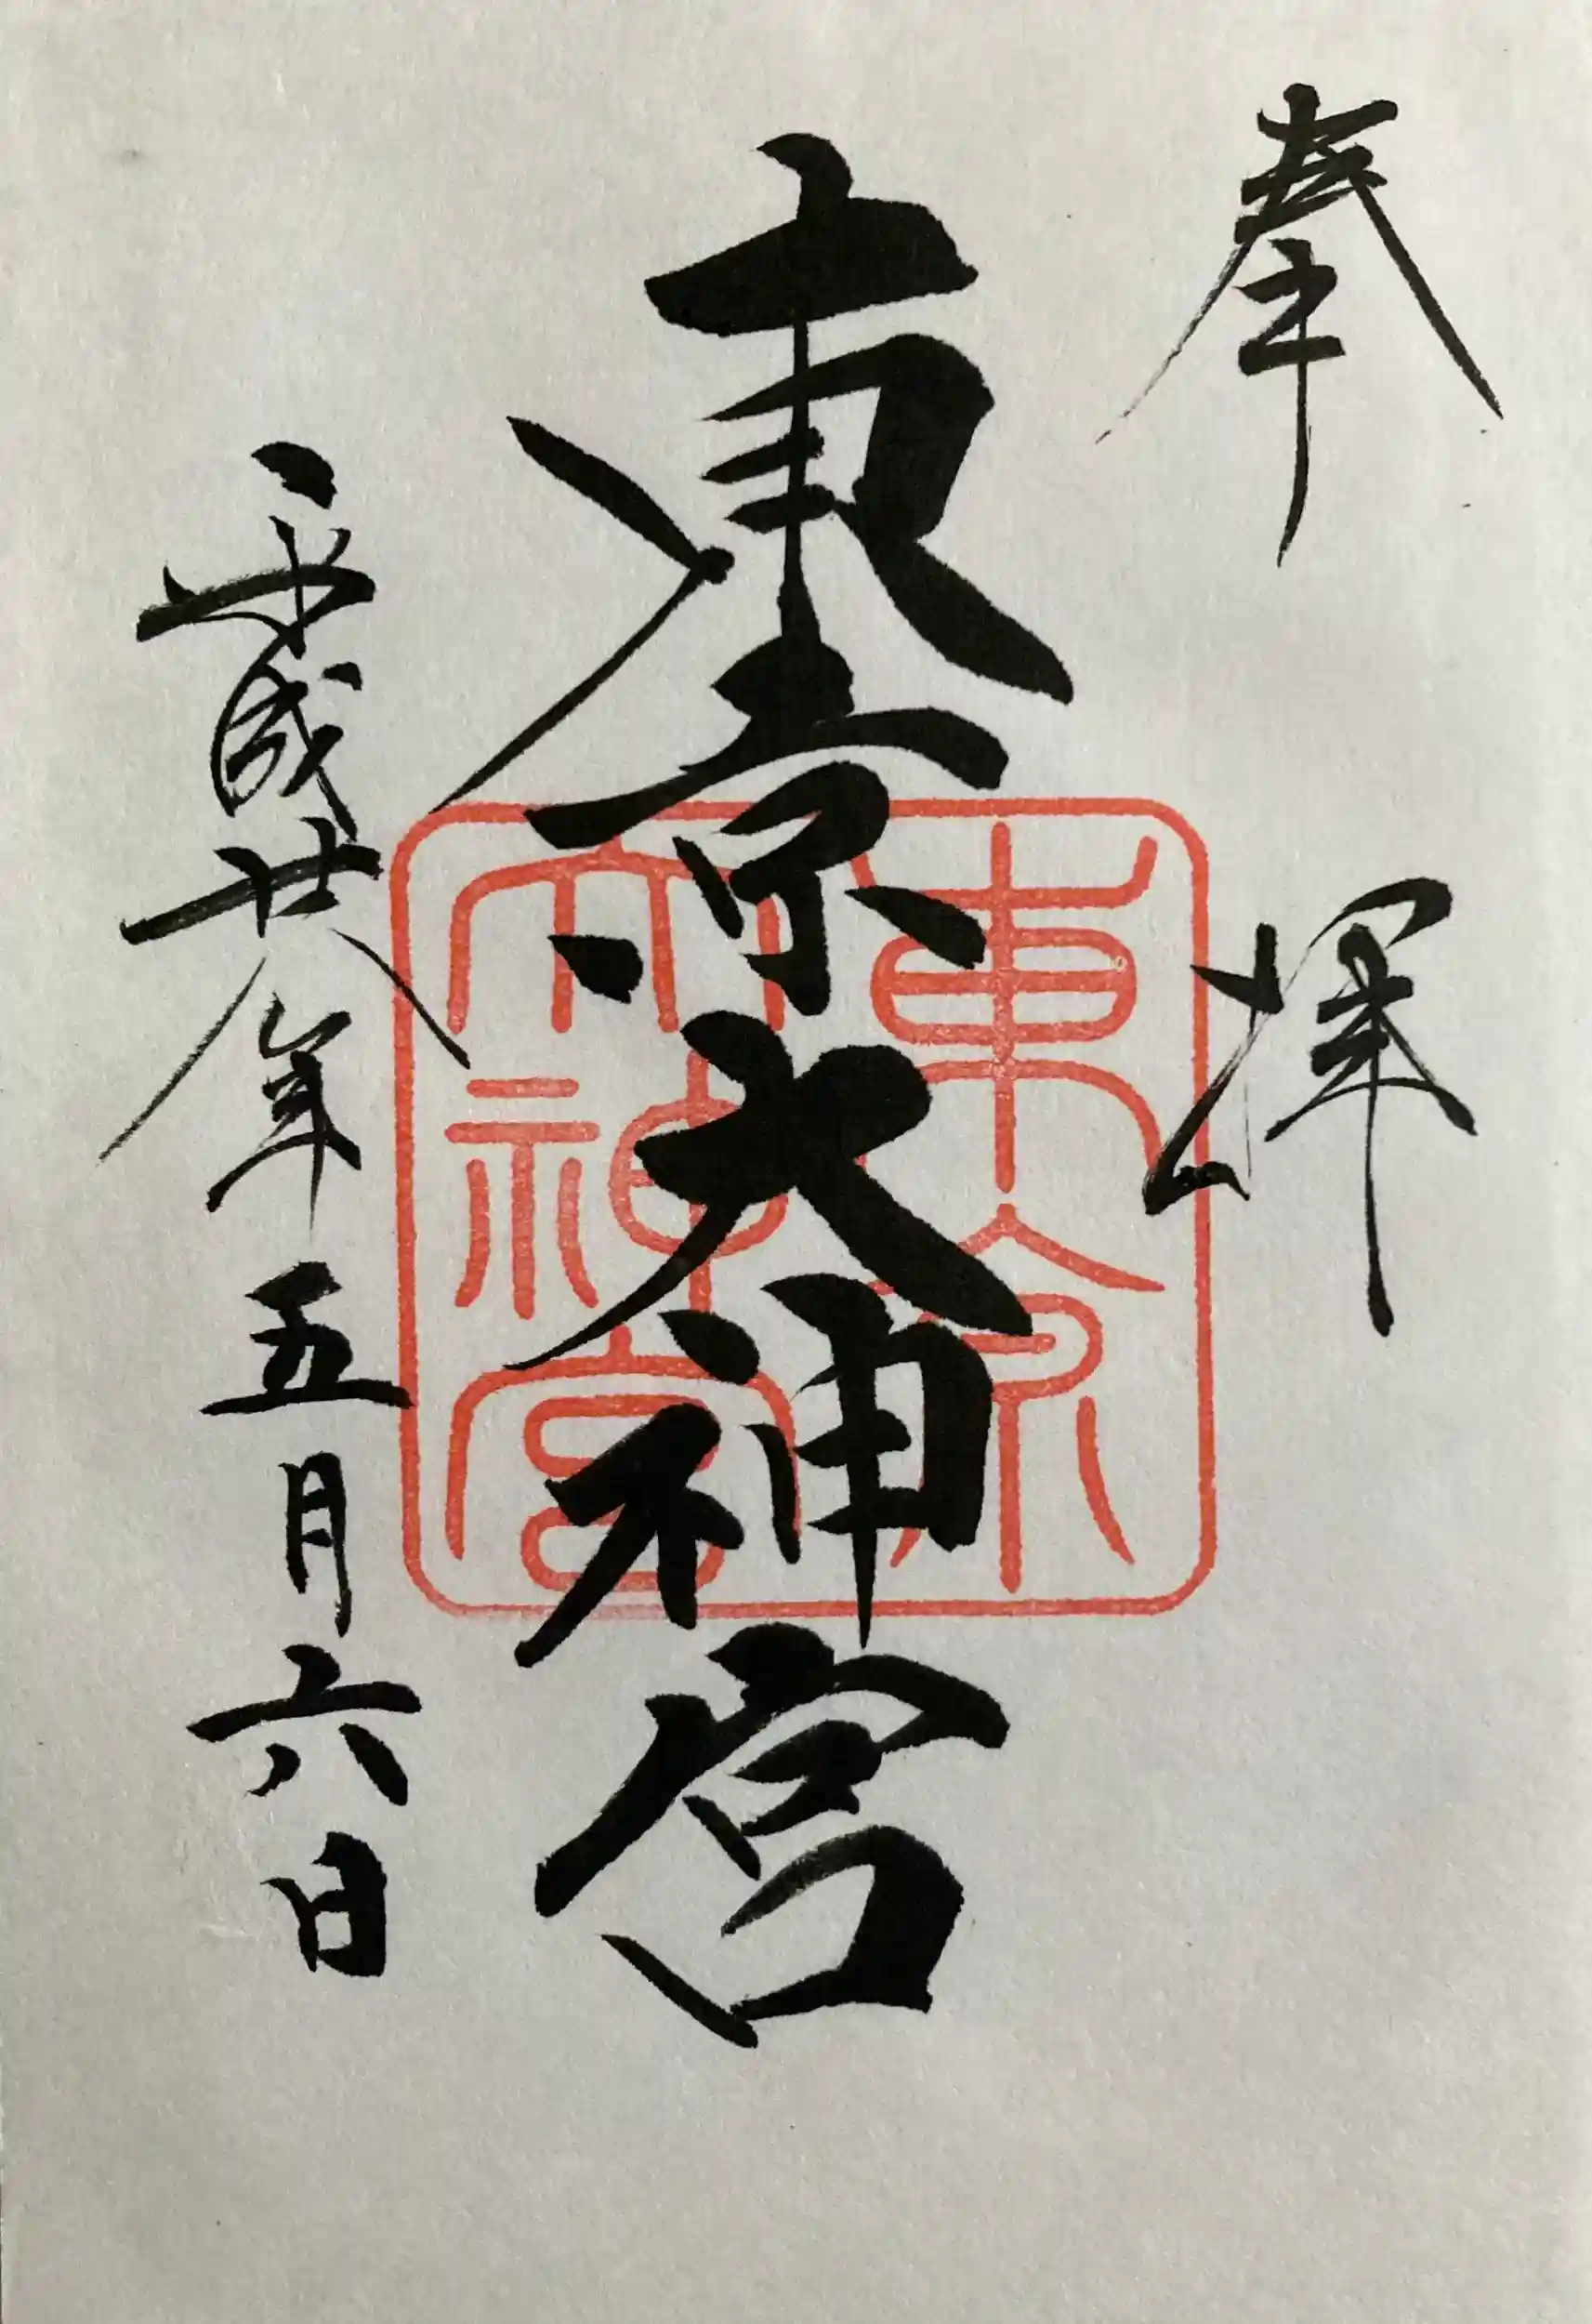 奉拝
東京大神宮
平成廿八年五月六日
東京
大神宮